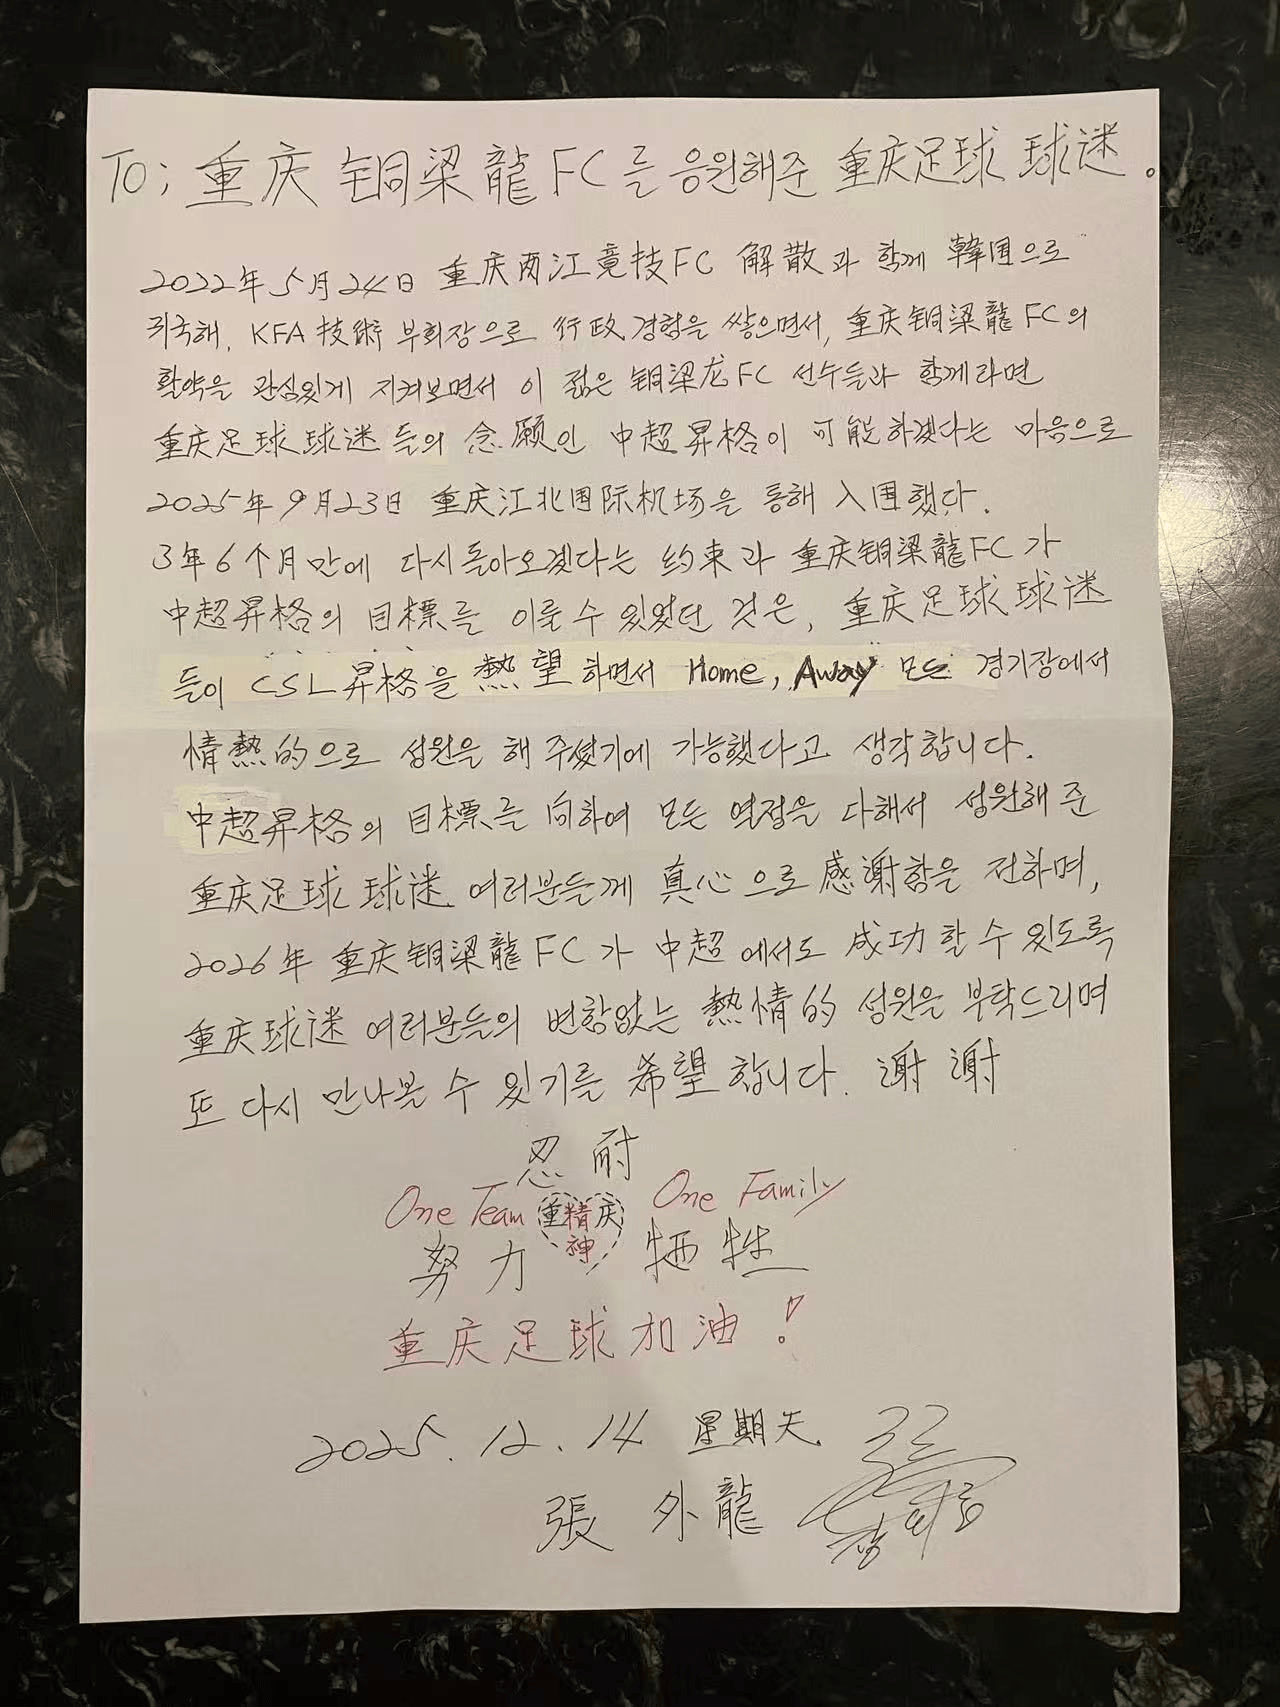 To; 重庆 铜梁龍FC를 응원해준 重庆足球 球迷.
2022年 5月24日 重庆两江竞技FC 解散과 함께 韓国으로
귀국해, KFA 技術 부회장으로 行政 경험을 쌓으면서, 重庆铜梁龍FC의
활약을 관심있게 지켜보면서 이 젊은 铜梁龙FC 선수들과 함께라면
重庆足球球迷들의 念願인 中超昇格이 可能하겠다는 마음으로
2025年 9月23日 重庆江北国际机场을 통해 入国했다.
3年6个月만에 다시돌아오겠다는 约束과 重庆铜梁龍FC가
中超昇格의 目標를 이룰수 있었던 것은, 重庆足球球迷
들이 CSL昇格을 熱望하면서 Home, Away 모든 경기장에서
情熱的으로 성원을 해 주셨기에 가능했다고 생각합니다.
中超昇格의 目標를 向하여 모든 열정을 다해서 성원해 준
重庆足球 球迷 여러분들께 真心으로 感谢함을 전하며,
2026年 重庆铜梁龍FC가 中超에서도 成功할 수 있도록
重庆球迷 여러분들의 변함없는 熱情的 성원을 부탁드리며
또 다시 만나볼 수 있기를 希望합니다. 谢谢
忍耐
One Team 重精庆 One Family
神
努力 牺牲
重庆足球加油!
2025. 12. 14 星期天
張 外龍